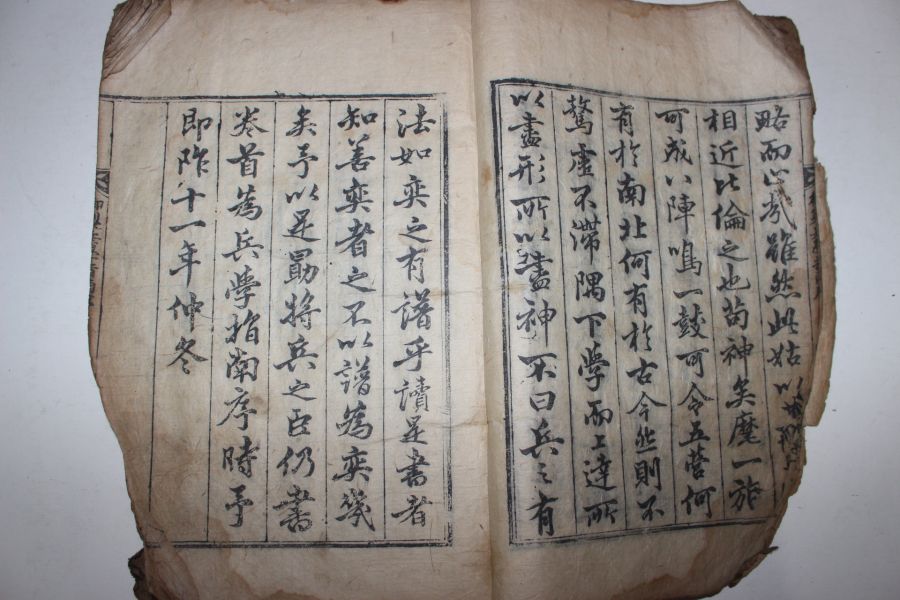 略而止哉雖然此姑以
相近比倫之也苟神矣麾一旅
可成八陣鳴一鼓可令五營何
有於南北何有於古今然則不
騖虛不滯隅下學而上達所
以盡形所以盡神不曰兵之有
法如奕之有譜乎讀是書者
知善奕者之不以譜為奕幾
矣予以是勖將兵之臣仍書
卷首為兵學指南序時予
即阼十一年仲冬